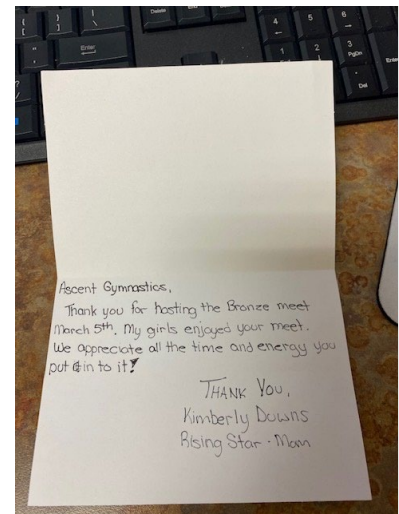 Delete
End
Enter
4
5
6
1
2
3
PgDn
Del
Enter
Ascent Gymnastics,
Thank you for hosting the Bronze meet
March 5th. My girls enjoyed your meet.
We appreciate all the time and energy you
put in to it!
THANK YOU,
Kimberly Downs
Rising Star · Mom